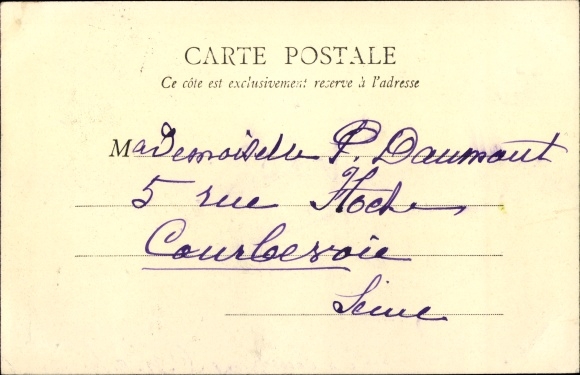 CARTE POSTALE
Ce côte est exclusivement reserve à l'adresse
Mademoiselle P. Daumont
5 rue Hoche
Courbevoie
Seine